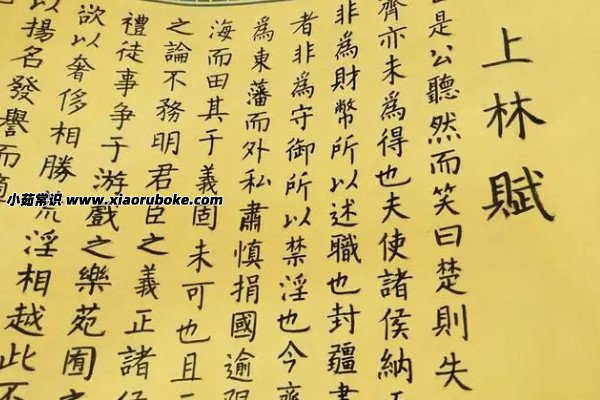 上林賦
是公聽然而笑曰楚則失
齊亦未為得也夫使諸侯納
非為財幣所以述職也封疆畫
者非為守御所以禁淫也今齊
為東藩而外私肅慎捐國逾限
海而田其于義固未可也且
之論不務明君臣之義正諸
禮徒事爭于游戲之樂苑囿之
欲以奢侈相勝荒淫相越此不
以揚名發譽而
小茹常识 www.xiaoruboke.com